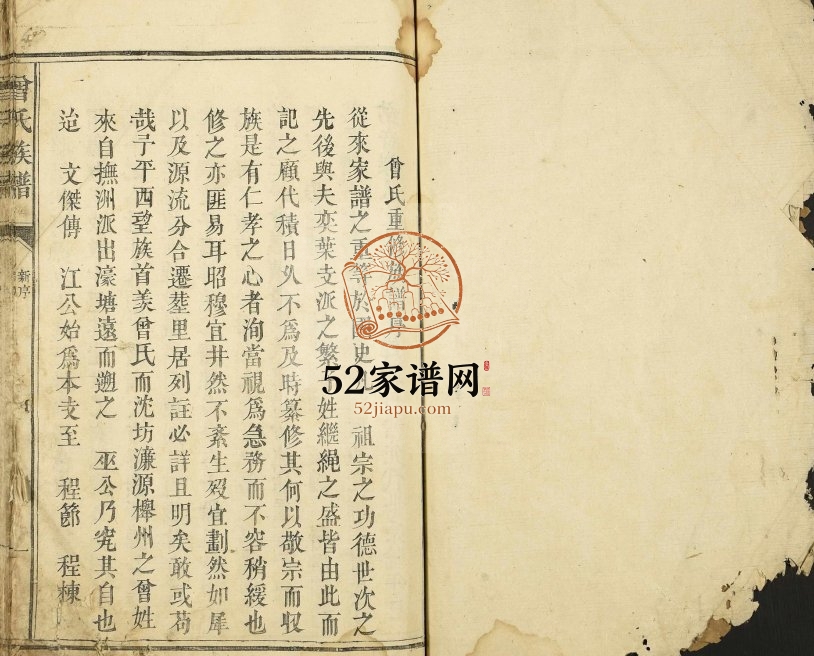 曾氏重修族譜序
從來家譜之重等於國史凡 祖宗之功德世次之
先後與夫奕葉支派之繁 姓繼繩之盛皆由此而
記之顧代積日久不為及時纂修其何以敬宗而收
族是有仁孝之心者洵當視為急務而不容稍緩也
修之亦匪易耳昭穆宜井然不紊生殁宜劃然如犀
以及源流分合遷塟里居列註必詳且明矣敢或苟
哉予平西望族首羨曾氏而沈坊濂源櫸州之曾姓
來自撫洲派出濠塘遠而遡之 巫公乃究其自也
迨 文傑傳 江公始為本支至 程節 程棟
曾氏族譜
新序
52家谱网
52jiapu.com